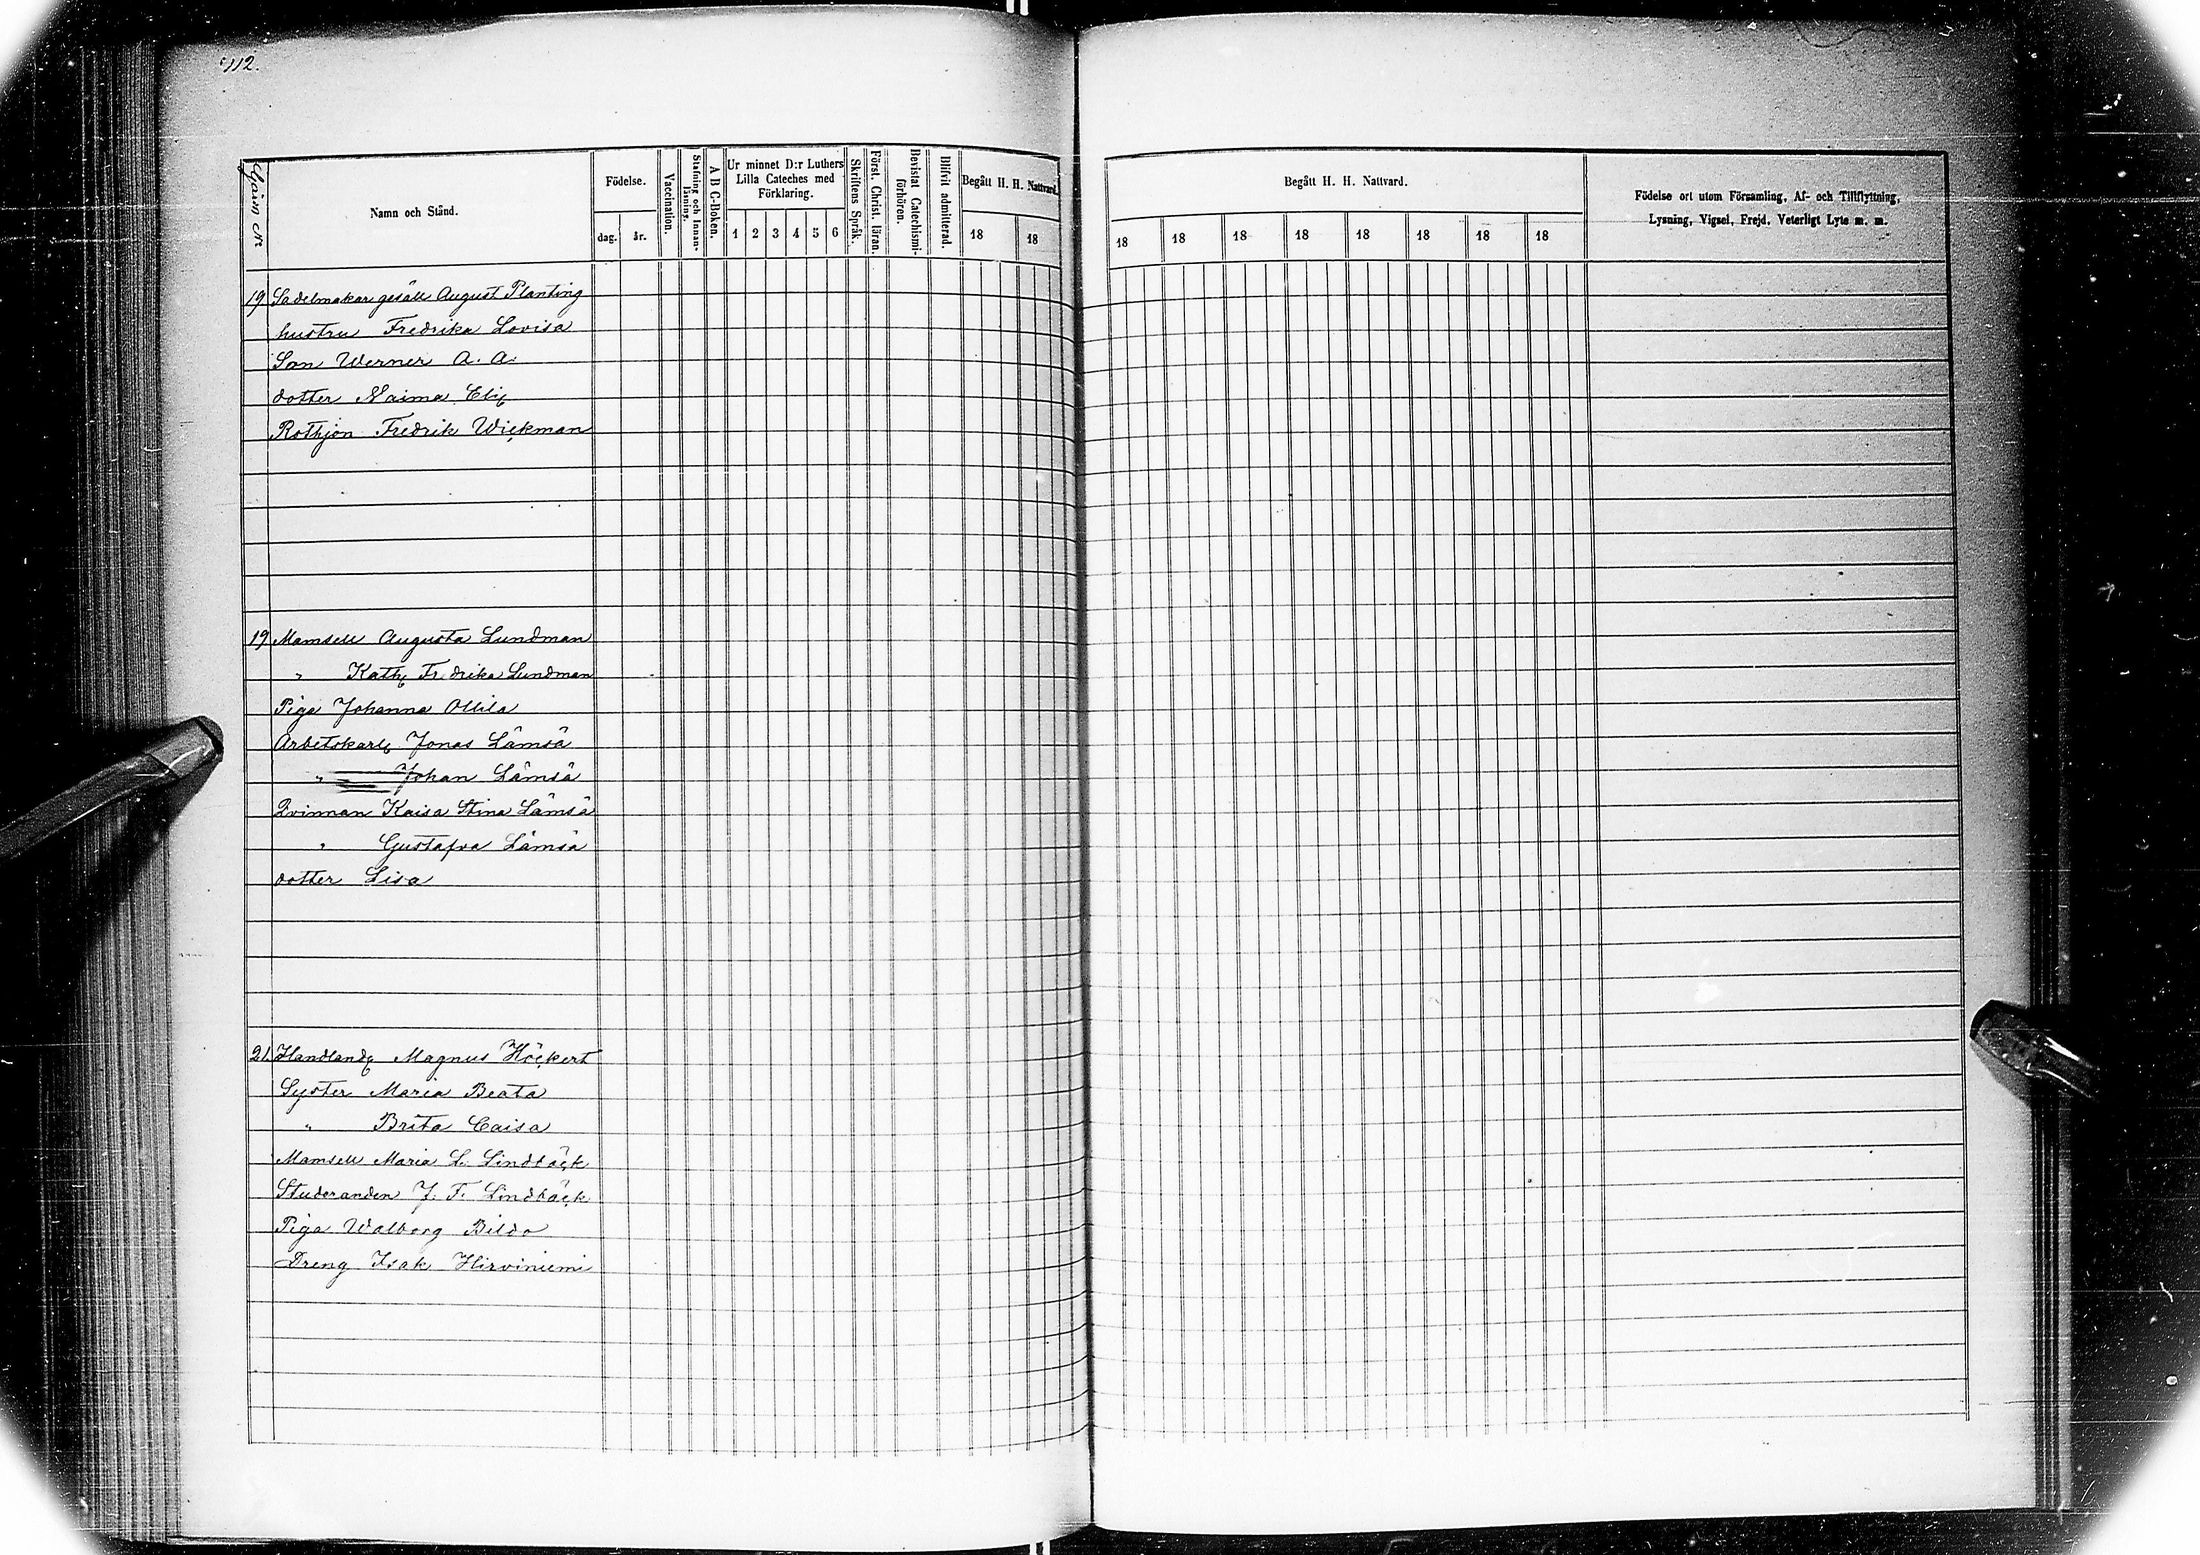 112.
Gårn Nr
Namn och Stånd.
Födelse.
dag.
år.
Vaccination.
Stafning och Innanläsning.
A B C-Boken.
Ur minnet D:r Luthers
Lilla Cateches med
Förklaring.
1 2 3 4 5 6
Skriftens Språk.
Först. Christ. läran.
Bevistat Catechismi-förhören.
Blifvit admitterad.
Begått H. H. Nattvard.
18 18
Begått H. H. Nattvard.
18 18 18 18 18 18 18 18
Födelse ort utom Församling, Af- och Tillflyttning,
Lysning, Vigsel, Frejd, Veterligt Lyte m. m.
19 Sadelmakar gesäll August Planting
hustru Fredrika Lovisa
Son Werner A. A.
dotter Naima Eliz
Rothjon Fredrik Wickman
19 Mamsell Augusta Lundman
" Kath Fredrika Lundman
Piga Johanna Ollila
Arbetskarl Jonas Lämsä
" Johan Lämsä
Qvinnan Kaisa Stina Lämsä
" Gustafva Lämsä
dotter Lisa
21. Handland Magnus Höckert
Syster Maria Beata
" Brita Caisa
Mamsell Maria L. Lindbäck
Studeranden J. F. Lindbäck
Piga Walborg Bildo
Dreng Isak Hirviniemi